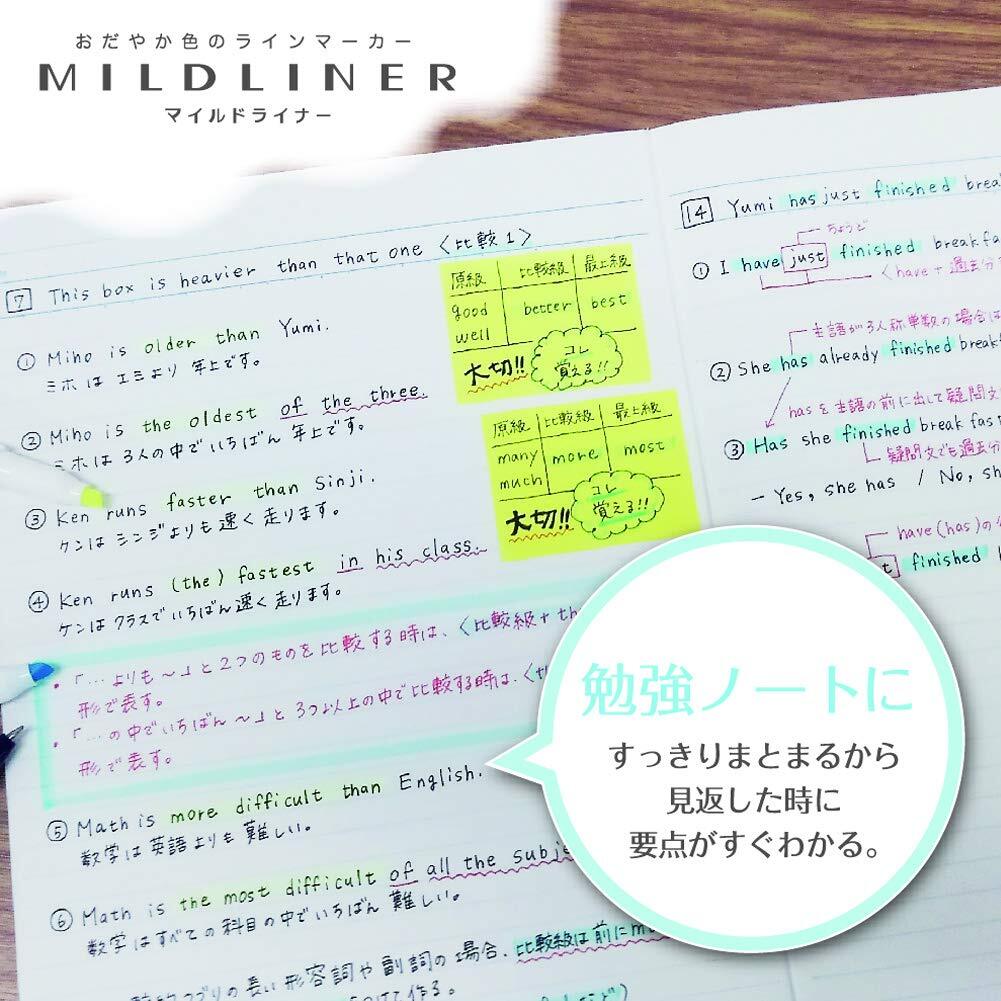 おだやか色のラインマーカー
MILDLINER
マイルドライナー
7 This box is heavier than that one 〈比較1〉
① Miho is older than Yumi.
ミホは エミより 年上です。
② Miho is the oldest of the three.
ミホは 3人の中でいちばん 年上です。
③ Ken runs faster than Sinji.
ケンは シンジよりも 速く 走ります。
④ Ken runs (the) fastest in his class.
ケンは クラスで いちばん 速く 走ります。
・「…よりも～」と2つのものを比較する時は、〈比較級+th
形で表す。
・「…の中でいちばん～」と 3つ以上の中で比較する時は、〈th
形で表す。
⑤ Math is more difficult than English.
数学は英語よりも 難しい。
⑥ Math is the most difficult of all the subje
数学はすべての科目の中でいちばん 難しい。
の長い形容詞や副詞の場合、比較級は前にm
作る。
原級 比較級 最上級
good better best
well
大切!! コレ
覚える!!
原級 比較級 最上級
many more most
much
大切!! コレ
覚える!!
14 Yumi has just finished brea
ちょうど
① I have just finished breakfa
〈have+過去分
主語が3人称単数の場合は
② She has already finished break
hasを主語の前に出して疑問文
③ Has she finished breakfas
疑問文でも過去分
– Yes, she has / No, sh
have(has)の
t finished
勉強ノートに
すっきりまとまるから
見返した時に
要点がすぐわかる。